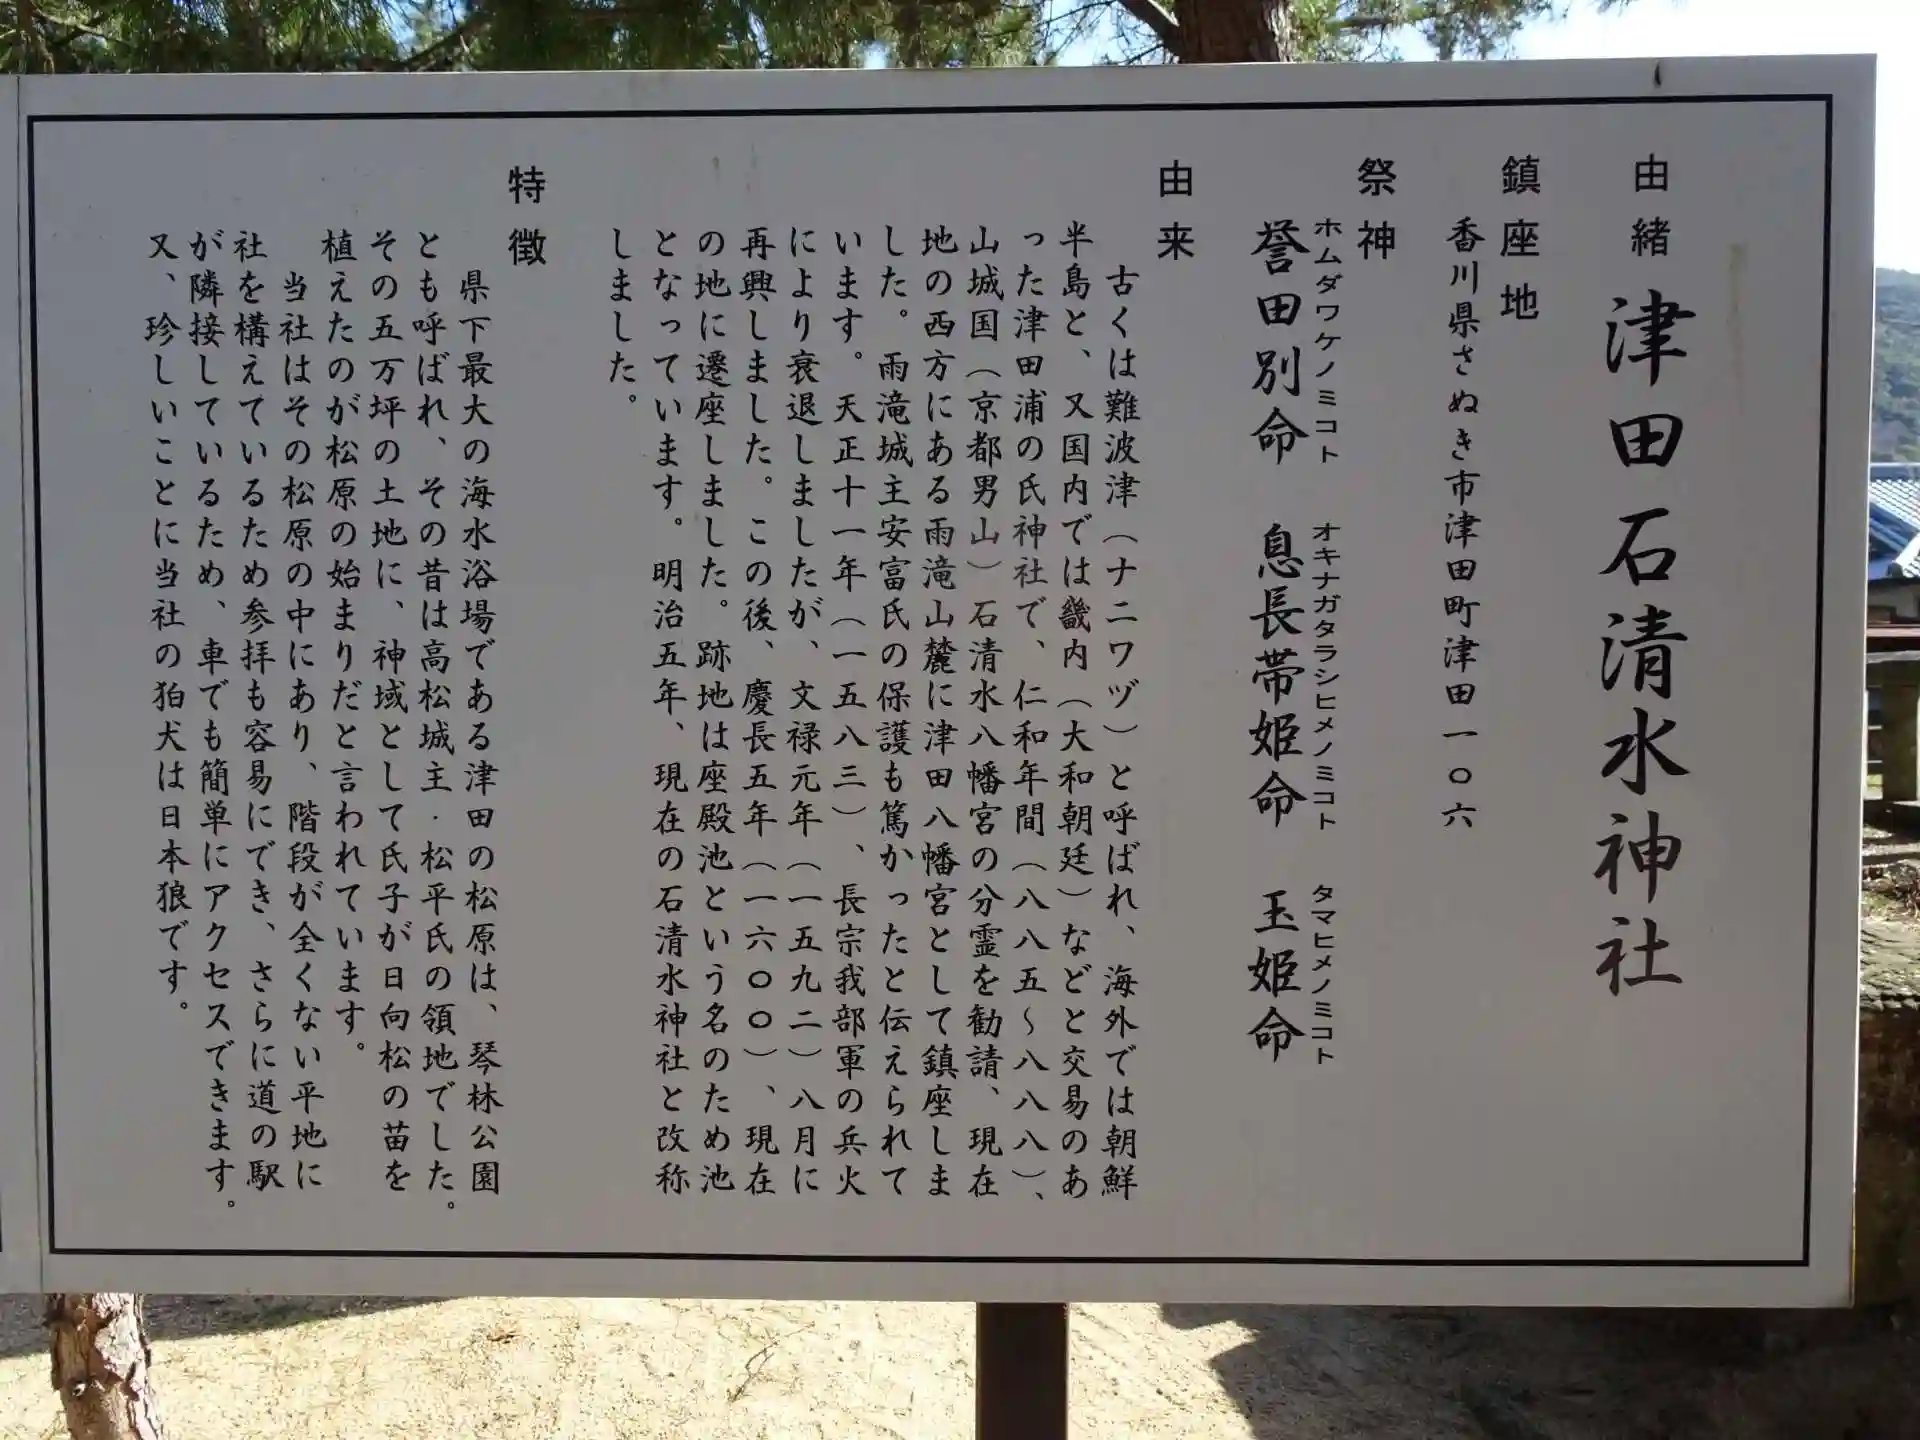 由緒 津田石清水神社
鎮座地
香川県さぬき市津田町津田一〇六
祭神
ホムダワケノミコト オキナガタラシヒメノミコト タマヒメノミコト
誉田別命 息長帯姫命 玉姫命
由来
古くは難波津(ナニワヅ)と呼ばれ、海外では朝鮮
半島と、又国内では畿内(大和朝廷)などと交易のあ
った津田浦の氏神社で、仁和年間(八八五~八八八)、
山城国(京都男山)石清水八幡宮の分霊を勧請、現在
地の西方にある雨滝山麓に津田八幡宮として鎮座しま
した。雨滝城主安富氏の保護も篤かったと伝えられて
います。天正十一年(一五八三)、長宗我部軍の兵火
により衰退しましたが、文禄元年(一五九二)八月に
再興しました。この後、慶長五年(一六〇〇)、現在
の地に遷座しました。跡地は座殿池という名のため池
となっています。明治五年、現在の石清水神社と改称
しました。
特徴
県下最大の海水浴場である津田の松原は、琴林公園
とも呼ばれ、その昔は高松城主・松平氏の領地でした。
その五万坪の土地に、神域として氏子が日向松の苗を
植えたのが松原の始まりだと言われています。
当社はその松原の中にあり、階段が全くない平地に
社を構えているため参拝も容易にでき、さらに道の駅
が隣接しているため、車でも簡単にアクセスできます。
又、珍しいことに当社の狛犬は日本狼です。